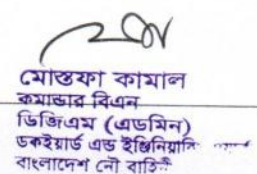 মোস্তফা কামাল
কমান্ডার বিএন
ডিজিএম (এডমিন)
ডকইয়ার্ড এন্ড ইঞ্জিনিয়ারিং
বাংলাদেশ নৌ বাহিনী